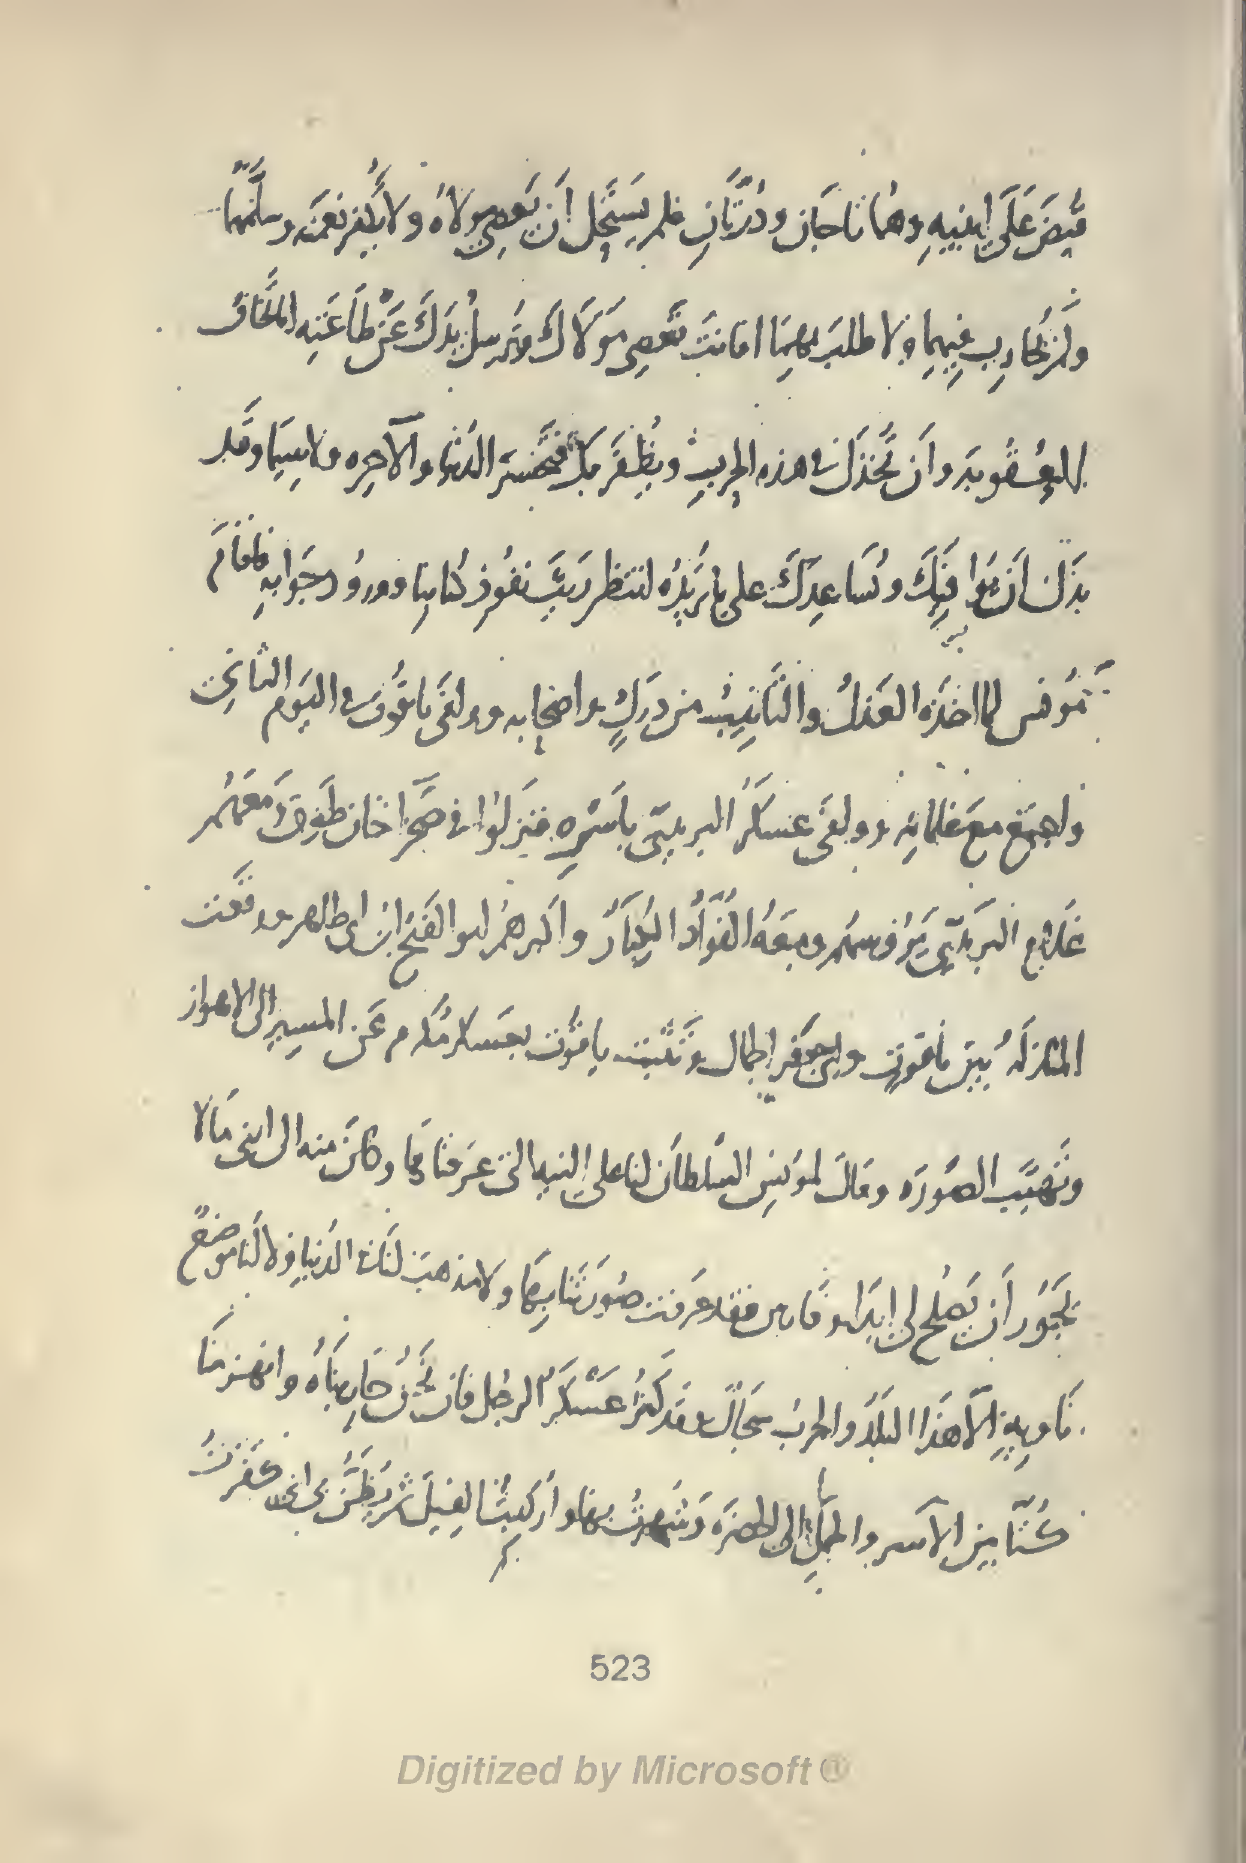 قبض على ابنيه وهما تاجان ودرتان فلم يستحل ان يعصي مولاه ولا يكفر نعمته وسلمهما
ولم يحارب فيهما ولا طلب بهما افانت تعصي مولاك وترسل يدك عن طاعته اما تخاف
العقوبه وان تخذل في هذه الحرب ويظفر بك فتخسر الدنيا والآخره ولا سيما وقد
بذلنا ان نوافيك ونساعدك على ما تريده لننتظر ريث نفوذ كتابنا وورود جوابه فاقام
مونس لما اخذه العذل والتانيب من درك واصحابه ووافى ياقوت في اليوم الثاني
واجتمع مع غلمانه ووافى عسكر البريدي باسره فنزلوا في صحرا خان طوق ومعهم
غلام البريدي يروسهم ومعه القواد الكبار واكبرهم ابو الفتح ابن ابي طاهر ووقعت
المنازله بين ياقوت وابي جعفر الجمال وتثبت ياقوت بعسكر مكرم عن المسير الى الاهواز
وتهيب الصوره وقال لمونس السلطان لنا على النيه التي عرفناها وكان منه الى ابني ما لا
يجوز ان يصلح لي ابدا وفارس فقد عرفت صورتنا بها ولا مذهب لنا في الدنيا ولا لنا موضع
ناويه الا هذا البلد والحرب سجال وقد كثر عسكر الرجل فان نحن حاربناه وانهزمنا
كنا بين الاسر والحمل الى الحضره وشهرت بها واركبت الفيل ثم يظن بي اني كفرت
523
Digitized by Microsoft ®